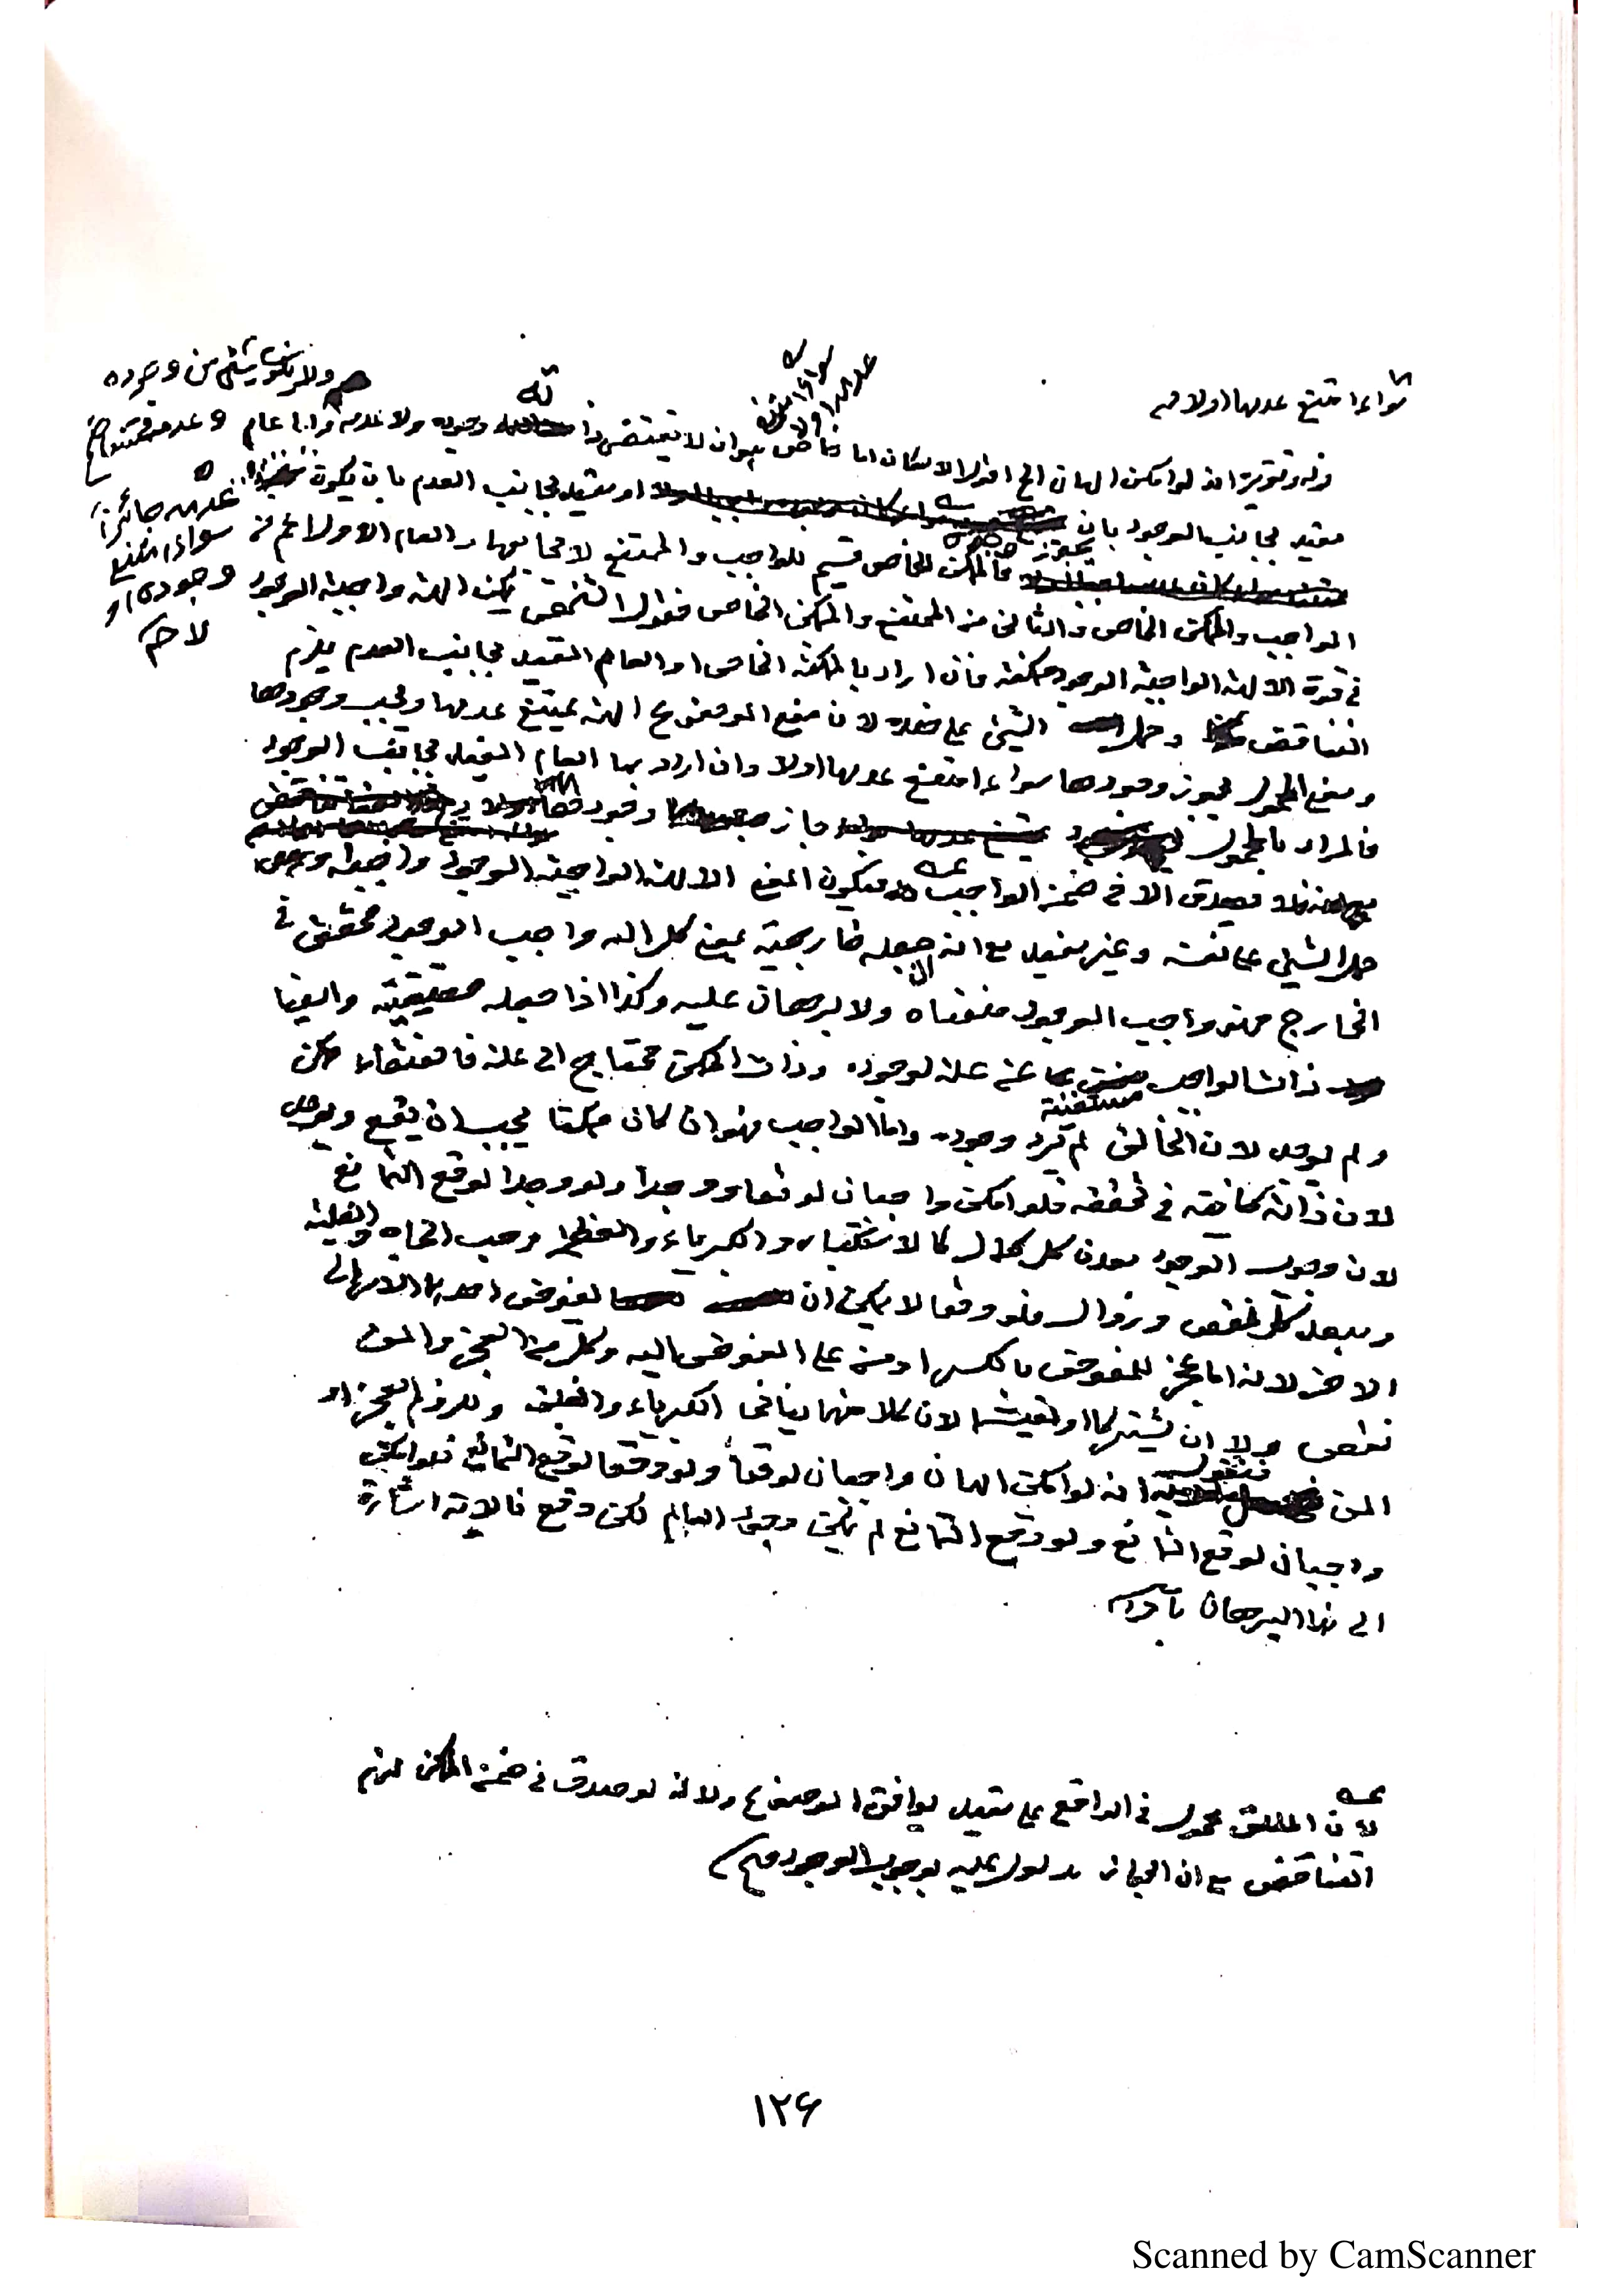 سواء امتنع عدمها اولا منه
ولا يكون شئ من وجوده
وعدمه ممتنع
قوله وتقريره انه لو امكن الهان الخ اقول الامكان اما خاص بان لا يقتضى ذاته وجوده ولا عدمه واما عام
مقيد بجانب الوجود بان او مقيد بجانب العدم بان يكون عدمه جائزا سواء امتنع وجوده او لا منه
يجوز فالممكن الخاص قسيم للواجب والممتنع لا يجامعهما والعام الاول اعم من
الواجب والممكن الخاص والثانى من الممتنع والممكن الخاص فقول الشخص يمكن الهة واجبة الوجود
فى قوة الالهة الواجبة الوجود ممكنة فان اراد بالممكنة الخاص او العام المقيد بجانب العدم يلزم
التناقض وحمل الشئ على ضده لان معنى الموضوع ح الهة يمتنع عدمها ويجب وجودها
ومعنى المحمول يجوز وجودها سواء امتنع عدمها اولا وان اراد بها العام المقيد بجانب الوجود
فالمراد بالمحمول جاز وجودها
فلا يصدق الا فى ضمن الواجب فيكون المعنى الالهة الواجبة الوجود واجبة وهو
حمل الشئ على نفسه وغير مفيد مع انه ان جعله خارجية بمعنى كل اله واجب الوجود محقق فى
الخارج فهو واجب الوجود منعناه ولا برهان عليه وكذا اذا جعله حقيقية وايضا
ذات الواجب مستغنية عن علة لوجوده وذات الممكن محتاج الى علة فالعنقاء ممكن
ولم يوجد لان الخالق لم يرد وجوده واما الواجب فهو ان كان ممكنا يجب ان يقع ويوجد
لان ذاته كافية فى تحققه فلو امكن واجبان لوقعا ووجدا ولو وجدا لوقع التمانع
لان وجوب الوجود معدن كل كمال كالاستكبار والكبرياء والعظمة وحب الجاه والغلبة
ومبعد كل نقص وزوال فلو وقعا لا يمكن ان يفوض احدهما الامر الى
الاخر لانه اما عجز للمفوض بالكسر او من على المفوض اليه وكل من العجز والمن
نقص ولا ان يشتركا او يقتسما لان كلا منهما ينافى الكبرياء والغلبة وللزوم العجز او
المن فنقول انه لو امكن الهان واجبان لوقعا ولو وقعا لوقع التمانع فلو امكن
واجبان لوقع التمانع ولو وقع التمانع لم يمكن وجود العالم لكن وقع فالاية اشارة
الى هذا البرهان
لان المطلق محمول فى الواقع على مقيد يوافق الموضوع ولانه لو صدق فى ضمن الممكن لزم
التناقض مع ان الجواز مدلول عليه بوجوب الوجود
١٢٦
Scanned by CamScanner